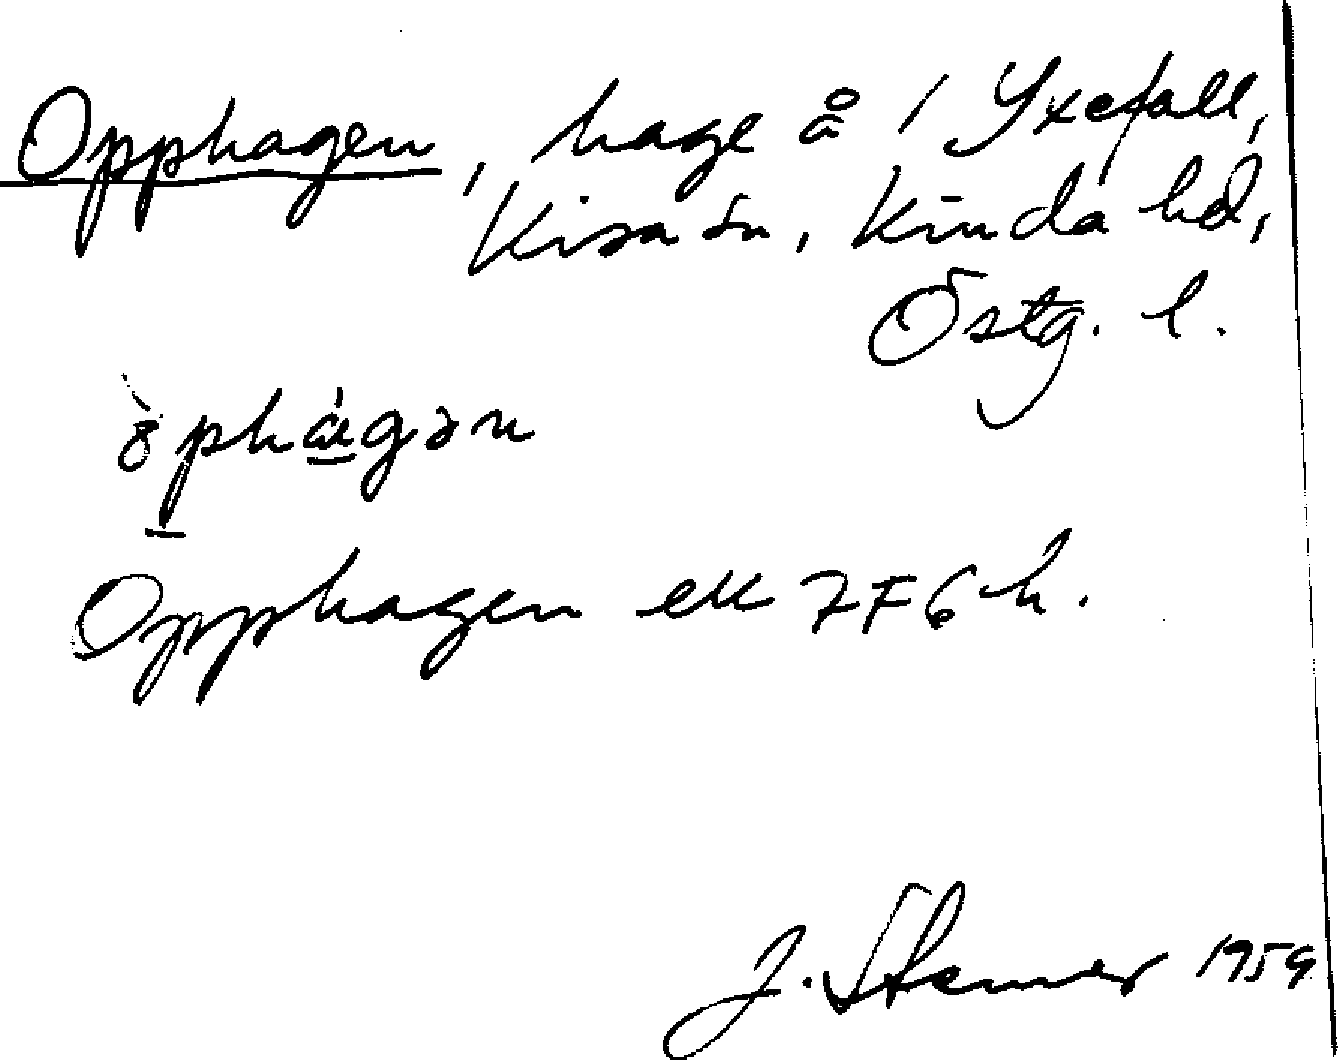 Opphagen, hage å 1 Yxefall,
Kisa sn, Kinda hd,
Östg. l.
òphágən
Opphagen ek 7F6h.
J. 1959